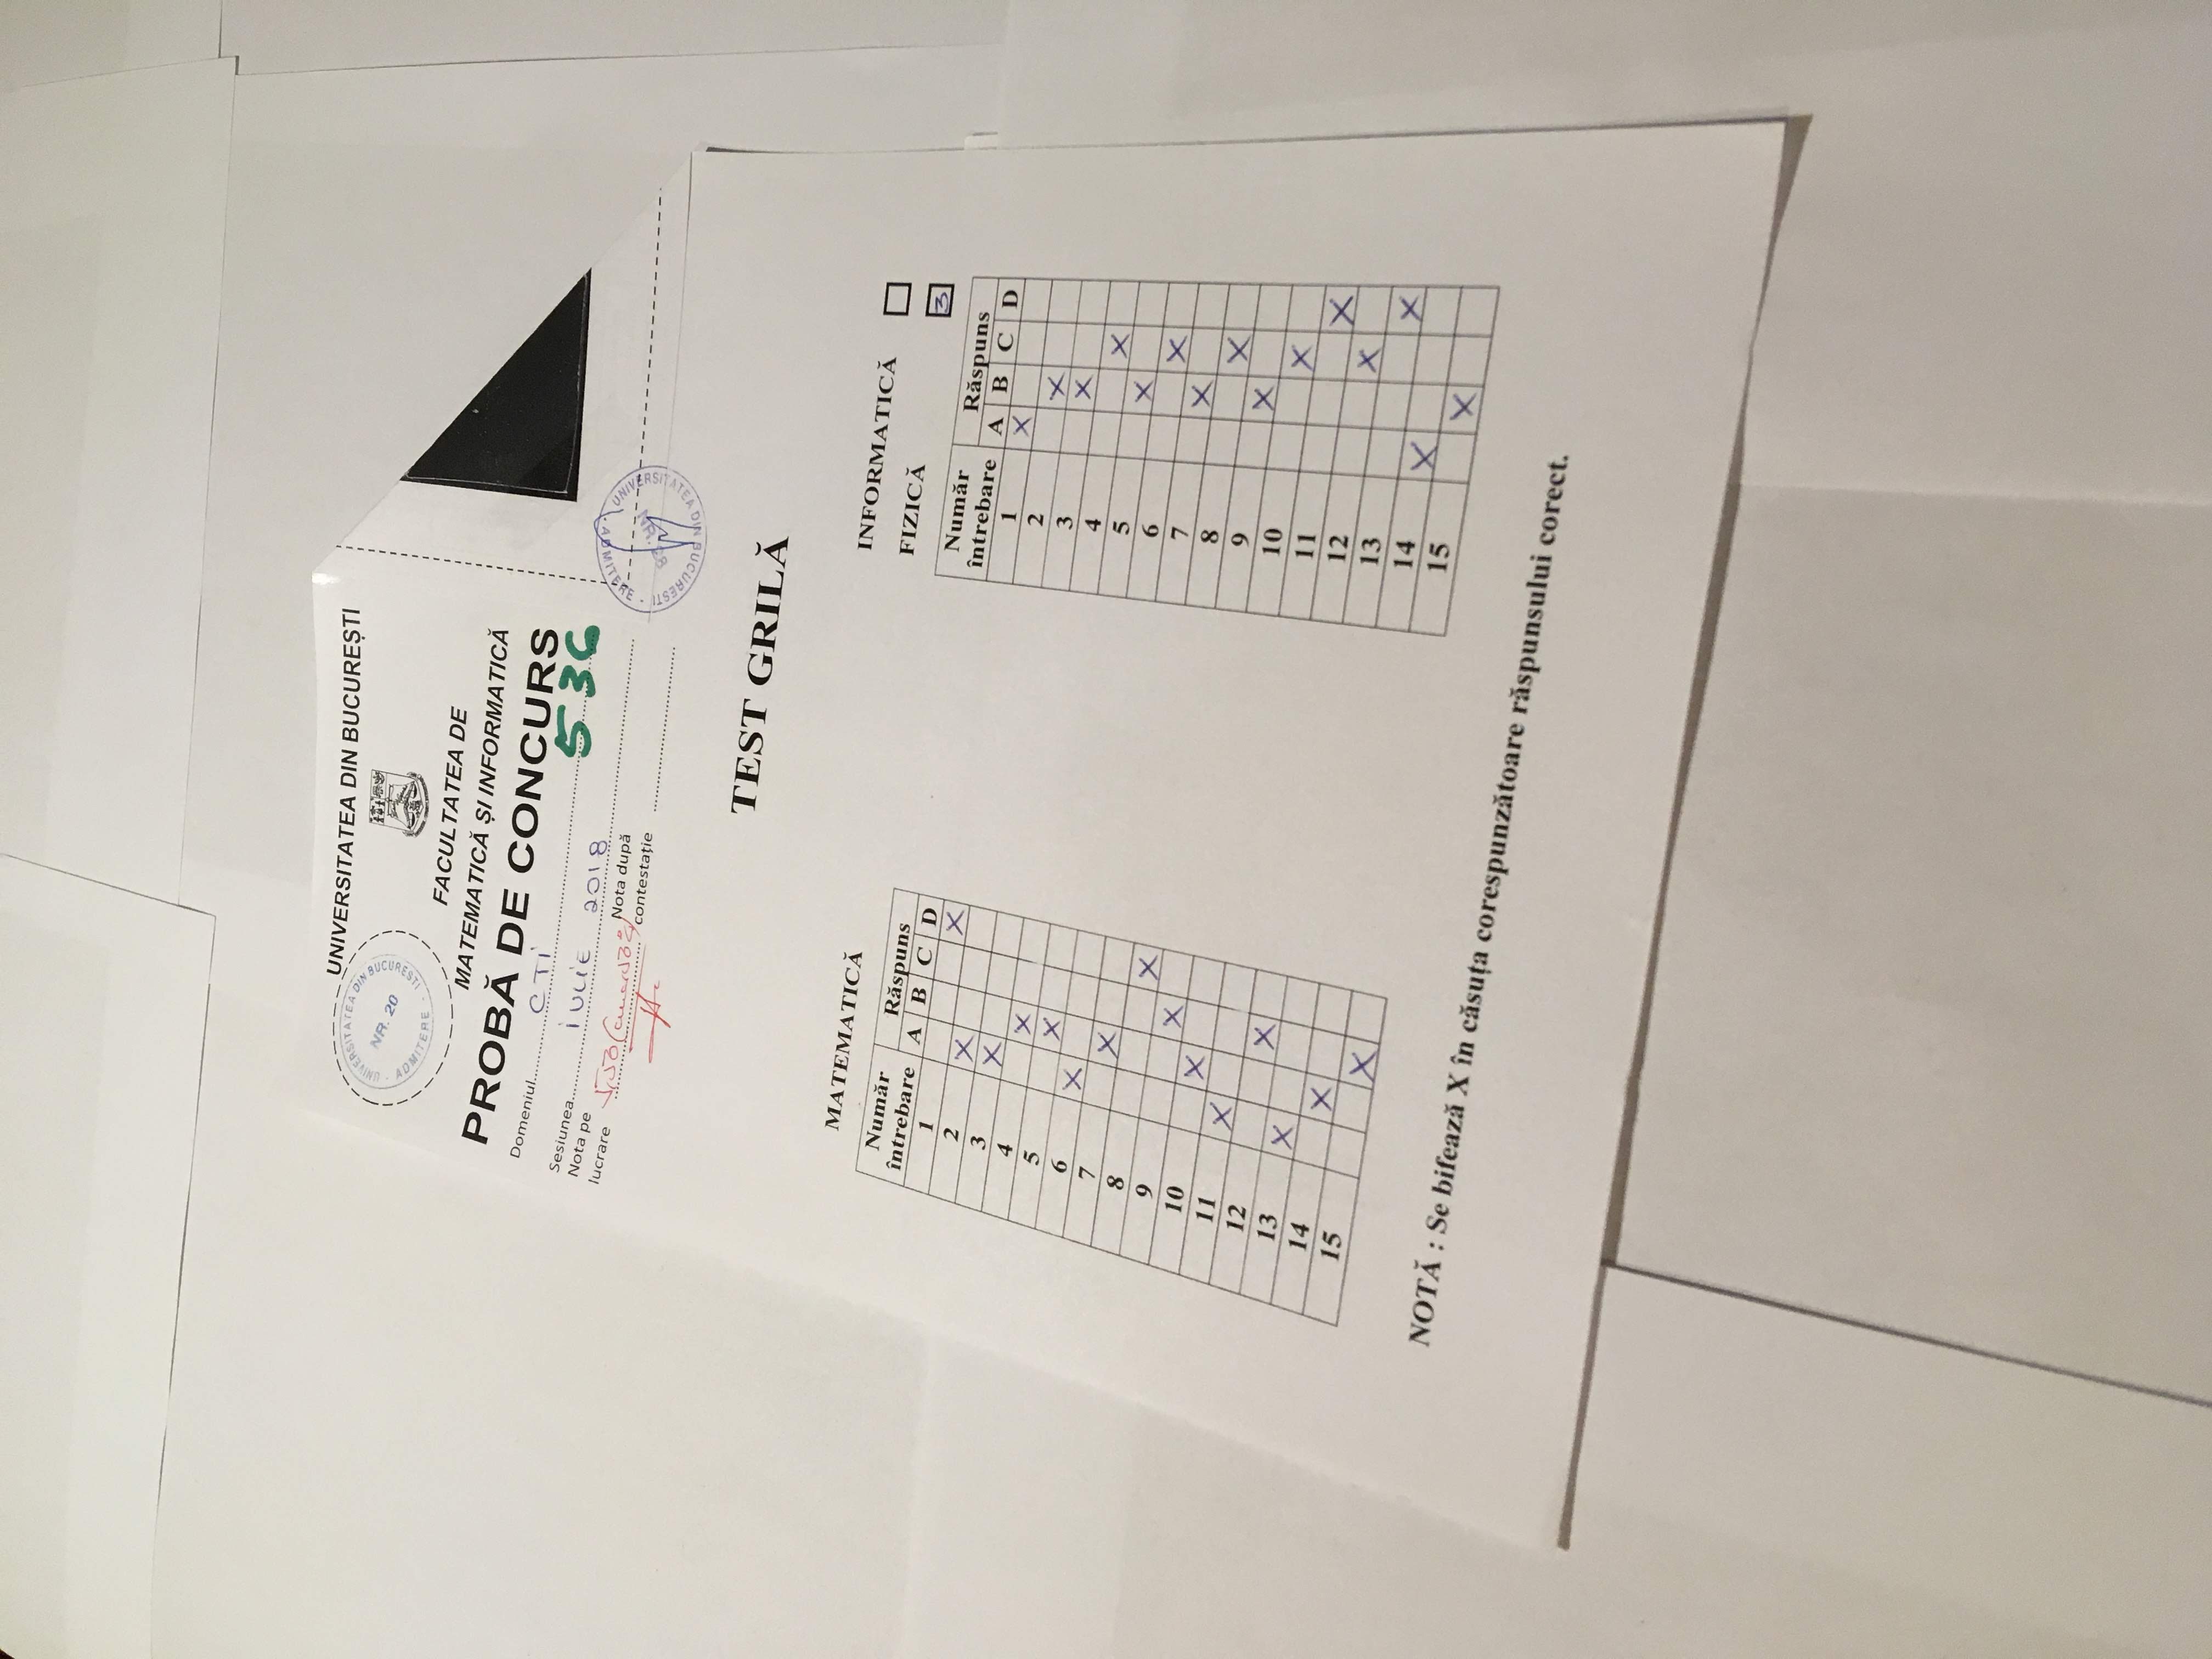 UNIVERSITATEA DIN BUCUREȘTI
UNIVERSITATEA DIN BUCURESTI
NR. 20
ADMITERE
FACULTATEA DE
MATEMATICĂ ȘI INFORMATICĂ
PROBĂ DE CONCURS
Domeniul CTI
536
Sesiunea IULIE 2018
Nota pe
lucrare 5,50
Nota după
contestație
UNIVERSITATEA DIN BUCURESTI
ADMITERE
TEST GRILĂ
MATEMATICĂ
Număr
întrebare
Răspuns
A B C D
1 X
2 X
3 X
4 X
5 X
6 X
7 X
8 X
9 X
10 X
11 X
12 X
13 X
14 X
15 X
INFORMATICĂ
FIZICĂ 3
Număr
întrebare
Răspuns
A B C D
1 X
2 X
3 X
4 X
5 X
6 X
7 X
8 X
9 X
10 X
11 X
12 X
13 X
14 X
15 X
NOTĂ : Se bifează X în căsuța corespunzătoare răspunsului corect.